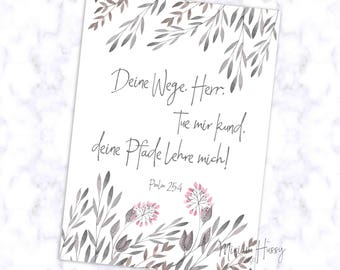 Deine Wege, Herr,
Tue mir kund,
deine Pfade Lehre mich!
Psalm 25,4
Miriam Hüssy